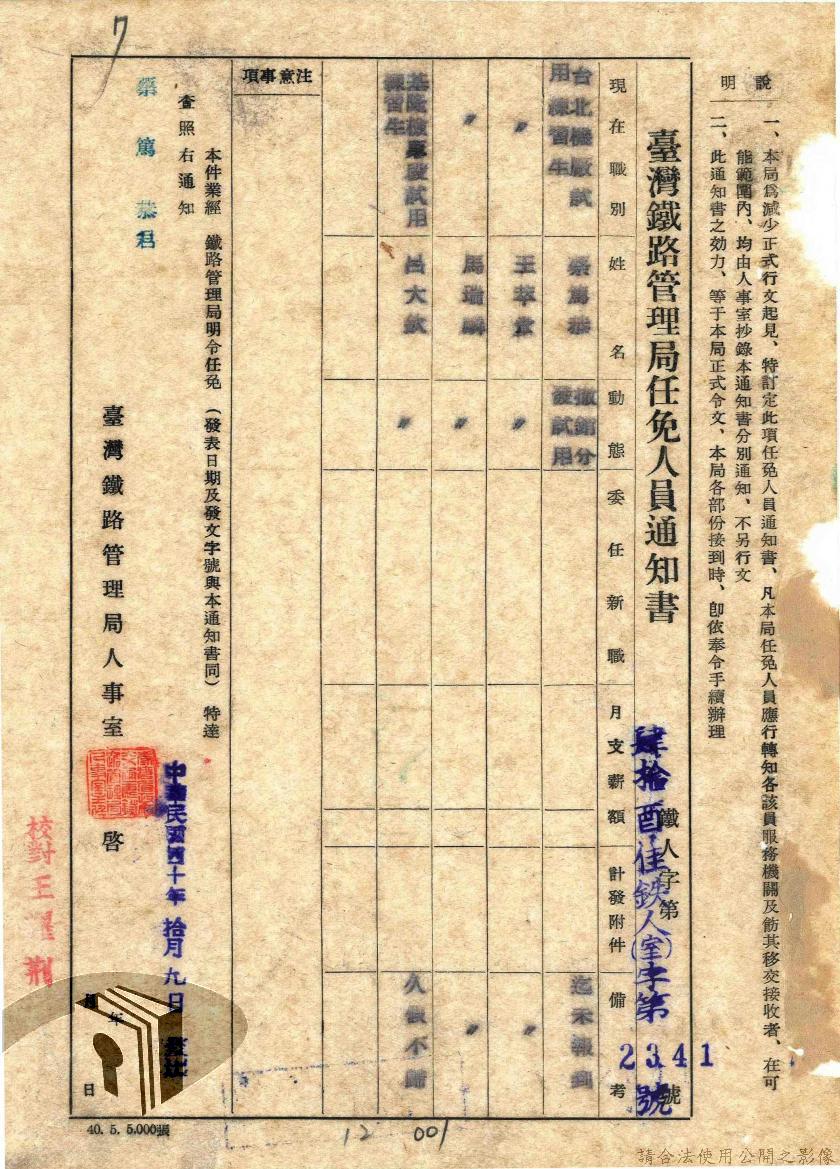 說明
一、本局爲減少正式行文起見、特訂定此項任免人員通知書、凡本局任免人員應行轉知各該員服務機關及飭其移交接收者、在可
能範圍內、均由人事室抄錄本通知書分別通知、不另行文
二、此通知書之効力、等于本局正式令文、本局各部份接到時、卽依奉令手續辦理
臺灣鐵路管理局任免人員通知書
鐵人字第 號
肆拾酉佳鉄人(室)字第2341號
現在職別 姓名 動態 委任新職 月支薪額 計發附件 備考
台北機廠試用練習生 蔡篤恭 撤銷分發試用 迄未報到
〃 王萃萱 〃 〃
〃 馬瑞麟 〃 〃
基隆檢車段試用練習生 呂大欽 〃 久假不歸
注意事項
本件業經 鐵路管理局明令任免(發表日期及發文字號與本通知書同)特達
查照右通知
蔡篤恭君
臺灣鐵路管理局人事室 啓
中華民國四十年拾月九日
年
日
校對王
40. 5. 5.000張
12 001
7
請合法使用公開之影像